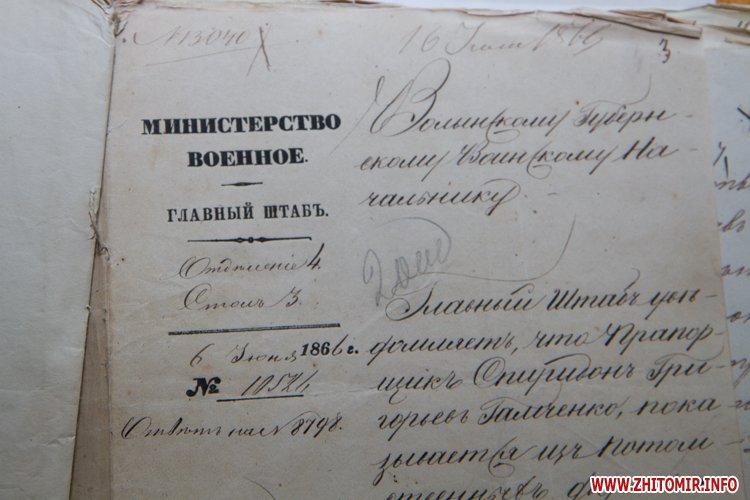 № 13040
16 Июня 1866
3
МИНИСТЕРСТВО
ВОЕННОЕ.
ГЛАВНЫЙ ШТАБЪ.
Отдѣленіе 4.
Столъ 3.
6 Июня 1866 г.
№ 10526
Отвѣтъ на № 8798.
Волынскому Губерн-
скому Воинскому На-
чальнику
Главный Штабъ увѣ-
домляетъ, что Прапор-
щикъ Спиридонъ Гри-
горьевъ Гамченко, пока
зывается изъ потом
ственныхъ
WWW.ZHITOMIR.INFO